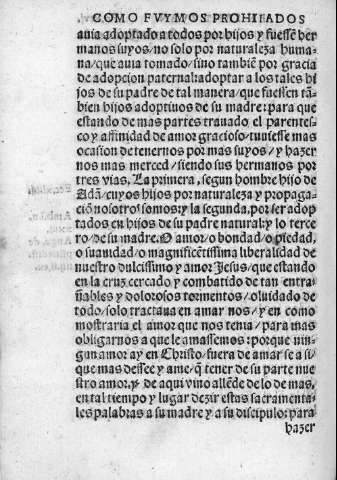 COMO FVYMOS PROHIIADOS
auia adoptado a todos por hijos y fuessẽ her
manos suyos/no solo por naturaleza huma-
na/que auia tomado/sino tambiẽ por gracia
de adopcion paternal:adoptar a los tales hi
jos de su padre de tal manera/que fuessen tã
bien hijos adoptiuos de su madre: para que
estando de mas partes trauado el parentes-
co y affinidad de amor gracioso/tuuiesse mas
ocasion de tenernos por mas suyos/y hazer
nos mas merced/siendo sus hermanos por
tres vias. La primera, segun hombre hijo de
Adã/cuyos hijos por naturaleza y propaga-
ciõ nosotros somos: y la segunda, por ser adop
tados en hijos de su padre natural: y lo terce
ro/de su madre. O amor/o bondad/o piedad,
o suauidad/o magnificẽtissima liberalidad de
nuestro dulcissimo y amor Jesus/que estando
en la cruz cercado y combatido de tan/entra-
ñables y dolorosos tormentos/oluidado de
todo/solo tractaua en amar nos/y en como
mostraria el amor que nos tenia/para mas
obligarnos a que le amassemos: porque nin-
gun amor ay en Christo/fuera de amar se a si/
que mas dessee y ame/q̃ tener de su parte nue
stro amor. y de aqui vino allẽde de lo de mas,
en tal tiempo y lugar dezir estas sacramenta-
les palabras a su madre y a su discipulo: para
hazer